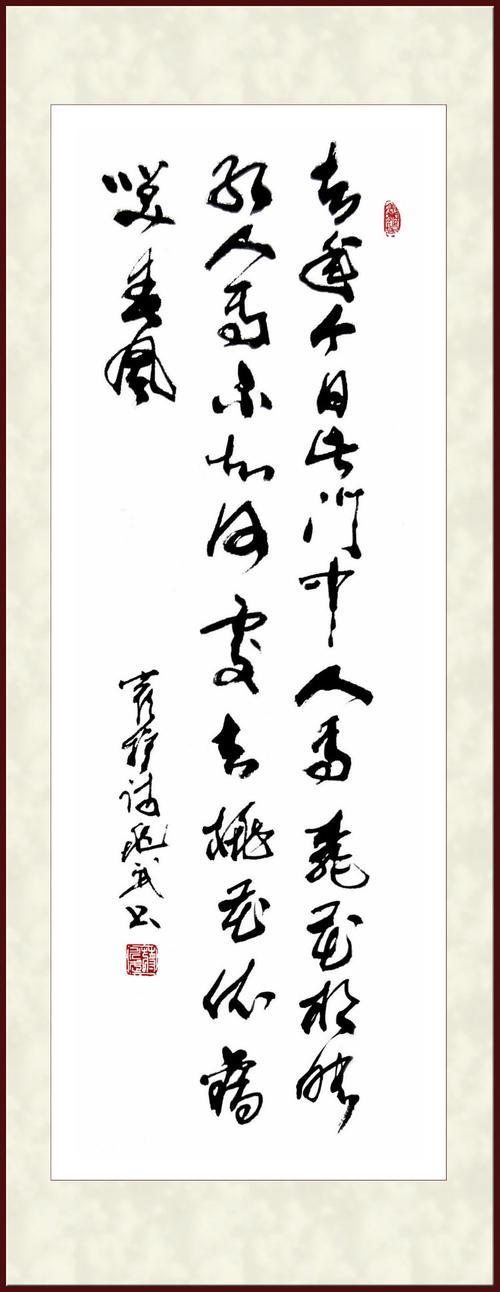 去年今日此门中人面桃花相映
红人面不知何處去桃花依舊
笑春風
崔护诗武书